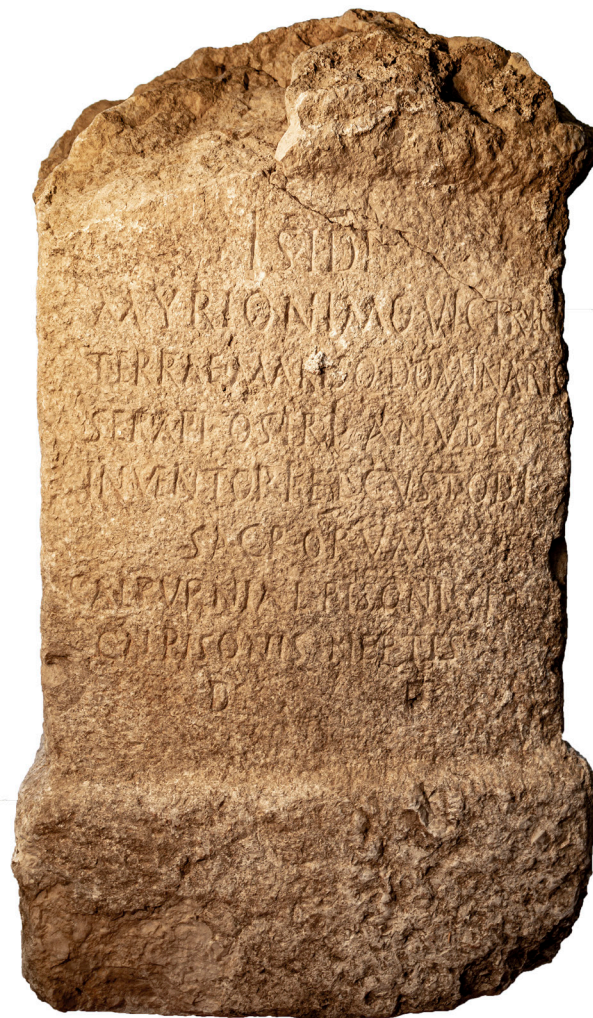 ISIDI
MYRIONIMO VICTRIC
TERRAE MARISQ DOMINATRI
SERAPI OSIRI ANVBI
INVENTORI ET CVSTODI
SACRORVM
CALPVRNIA L PISONIS F
CN PISONIS NEPTIS
D F